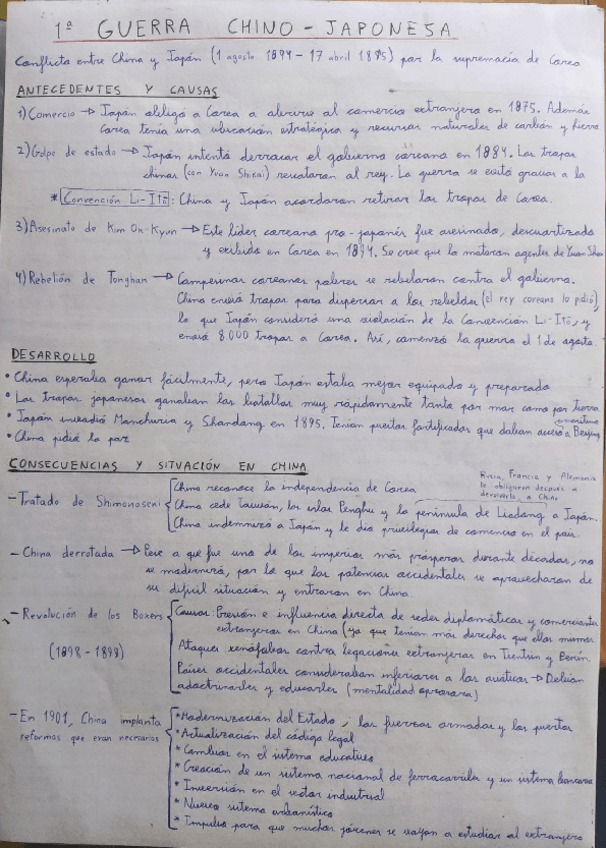 1ª GUERRA CHINO - JAPONESA
Conflicto entre China y Japón (1 agosto 1894 - 17 abril 1895) por la supremacía de Corea
ANTECEDENTES Y CAUSAS
1) Comercio → Japón obligó a Corea a abrirse al comercio extranjero en 1875. Además
Corea tenía una ubicación estratégica y recursos naturales de carbón y hierro
2) Golpe de estado → Japón intentó derrocar el gobierno coreano en 1884. Las tropas
chinas (con Yuan Shikai) rescataron al rey. La guerra se evitó gracias a la
* Convención Li-Itō: China y Japón acordaron retirar las tropas de Corea.
3) Asesinato de Kim Ok-Kyun → Este líder coreano pro-japonés fue asesinado, descuartizado
y exibido en Corea en 1894. Se cree que lo mataron agentes de Yuan
4) Rebelión de Tonghak → Campesinos coreanos pobres se rebelaron contra el gobierno.
China envió tropas para dispersar a los rebeldes (el rey coreano lo pidió),
lo que Japón consideró una violación de la Convención Li-Itō, y
envió 8.000 tropas a Corea. Así, comenzó la guerra el 1 de agosto
DESARROLLO
• China esperaba ganar fácilmente, pero Japón estaba mejor equipado y preparado
• Las tropas japonesas ganaban las batallas muy rápidamente tanto por mar como por tierra
• Japón invadió Manchuria y Shandong en 1895. Tenían puertos fortificados que daban acceso a Beijing
• China pidió la paz
CONSECUENCIAS Y SITUACIÓN EN CHINA
Rusia, Francia y Alemania
le obligaron después a
devolverla a China
- Tratado de Shimonoseki
China reconoce la independencia de Corea
China cede Taiwán, las islas Penghu y la península de Liadong a Japón.
China indemnizó a Japón y le dio privilegios de comercio en el país.
- China derrotada → Pese a que fue uno de los imperios más prósperos durante décadas, no
se modernizó, por lo que las potencias occidentales se aprovecharon de
su difícil situación y entraron en China.
- Revolución de los Boxers
(1898 - 1899)
Causas: Presión e influencia directa de sedes diplomáticas y comerciantes
extranjeros en China (ya que tenían más derechos que ellos mismos
Ataques xenófobos contra legaciones extranjeras en Tientsin y
Países occidentales consideraban inferiores a los asiáticos → Debían
adoctrinarles y educarles (mentalidad opresora)
- En 1901, China implanta
reformas que eran necesarias
* Modernización del Estado, las fuerzas armadas y los puertos
* Actualización del código legal
* Cambios en el sistema educativo
* Creación de un sistema nacional de ferrocarriles y un sistema bancario
* Inversión en el sector industrial
* Nuevo sistema urbanístico
* Impulso para que muchos jóvenes se vayan a estudiar al extranjero